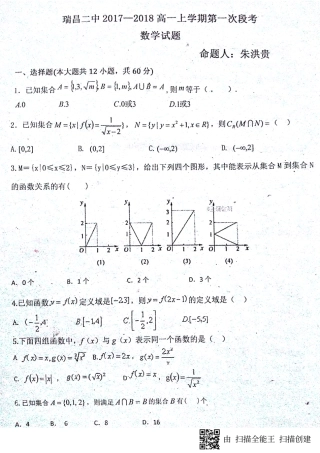 瑞昌二中 2017—2018 高一上学期第一次段考
数学试题
命题人：朱洪贵
一、选择题(本大题共 12 小题，共 60 分)
1．已知集合 A={1,3,√m}, B={1,m}, A∪B=A，则 m=（ ）
A.0或√3 B.0或3 C.1或√3 D.1或3
2．已知集合 M={x|f(x)=1/√(x-2)}，N={y|y=x²+1,x∈R}，则 C_R(M∩N)=（ ）
A. [0,2] B. (0,2] C. (-∞,2) D. (-∞,2]
3. M={x|0≤x≤2}，N={y|0≤y≤3}，给出下列四个图形，其中能表示从集合 M 到集合 N
的函数关系的有( )
(1) (2) (3) (4)
A．0个 B．1个 C．2个 D．3个
4.已知函数 y=f(x) 定义域是[-2,3]，则 y=f(2x-1) 的定义域是（ ）
B.[-1,4] D.[-5,5]
5.下面四组函数中，f(x) 与 g(x) 表示同一个函数的是（ ）
6．已知集合 A={0,1,2}，则满足 A∩B=A 的集合 B 有( )个
A．4 B．6 C．8 D．16
由 扫描全能王 扫描创建